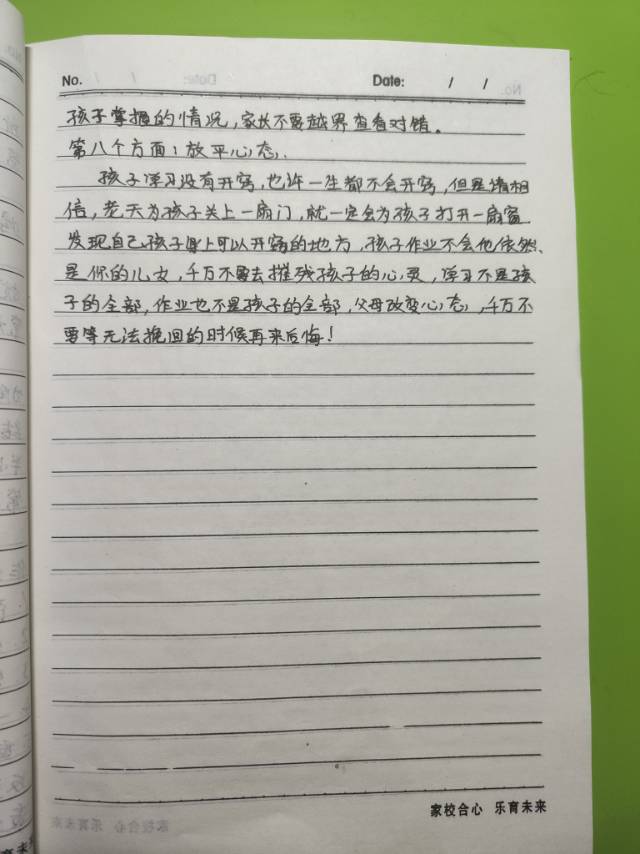 No. Date: / /
孩子掌握的情况,家长不要越界查看对错。
第八个方面:放平心态.
孩子学习没有开窍,也许一生都不会开窍,但是请相
信,老天为孩子关上一扇门,就一定会为孩子打开一扇窗
发现自己孩子身上可以开窍的地方,孩子作业不会他依然、
是你的儿女,千万不要去摧残孩子的心灵,学习不是孩
子的全部,作业也不是孩子的全部,父母改变心态,千万不
要等无法挽回的时候再来后悔!
家校合心 乐育未来